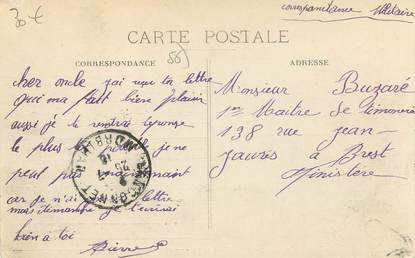 30 €
correspondance Militaire
CARTE POSTALE
55
CORRESPONDANCE
ADRESSE
cher oncle j'ai reçu ta lettre
qui ma fait bien plaisir
aussi je te rendrai reponse
le plus je ne
peut pas maintenant
car je n'ai lettre
mais dimanche je t'ecrirai
bien a toi
Pierre
Monsieur Buzaré
1er Maitre de timonerie
138 rue jean-
jaurès a Brest
Finistere